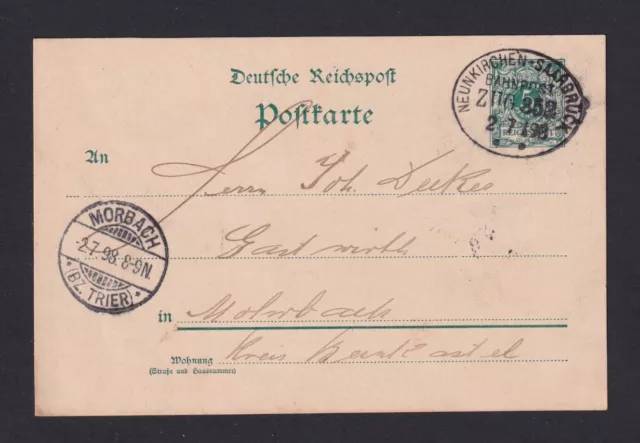 Deutsche Reichspost
Postkarte
NEUNKIRCHEN-SAARBRÜCK
BAHNPOST
ZUG 352
2.7.98
An
Herrn Joh.
Gastwirth
MORBACH
2.7.98. 8-9N.
(BZ. TRIER)
in Morbach
Wohnung Kreis Bernkastel
(Straße und Hausnummer)